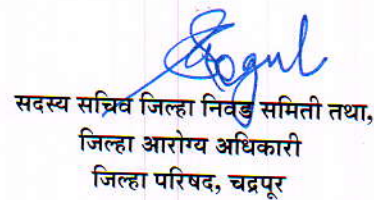 सदस्य सचिव जिल्हा निवड समिती तथा,
जिल्हा आरोग्य अधिकारी
जिल्हा परिषद, चद्रपूर